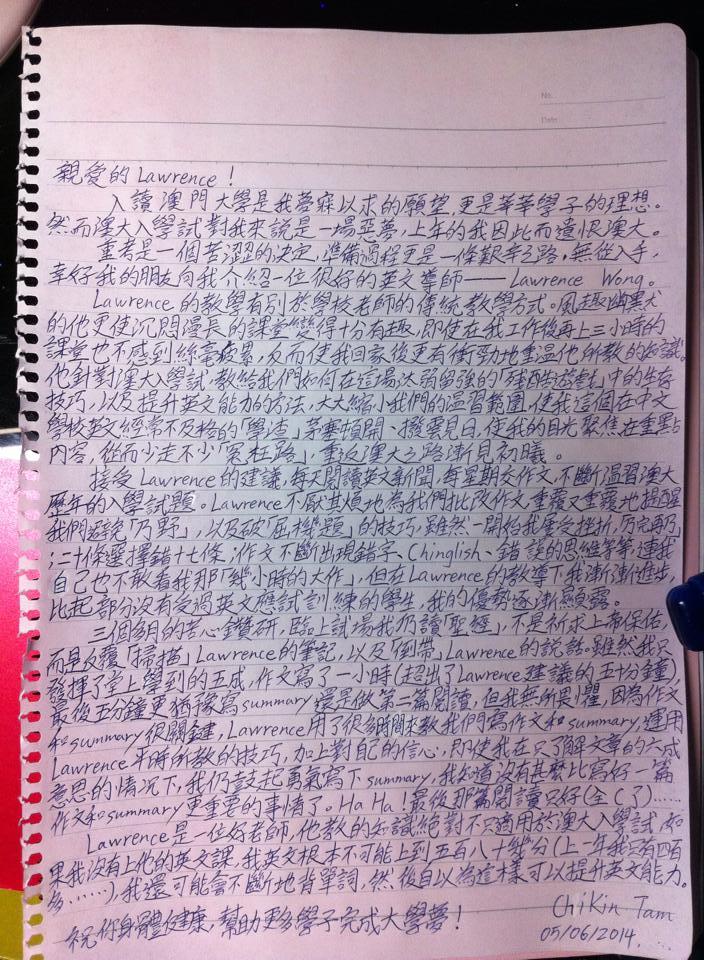 No.
Date
親愛的 Lawrence！
入讀澳門大學是我夢寐以求的願望，更是莘莘學子的理想。
然而澳大入學試對我來說是一場惡夢，上年的我因此而遺恨澳大。
重考是一個苦澀的決定，準備過程更是一條艱辛之路，無從入手，
幸好我的朋友向我介紹一位很好的英文導師——Lawrence Wong。
Lawrence 的教學有別於學校老師的傳統教學方式。風趣幽默
的他更使沉悶漫長的課堂變得十分有趣，即使在我工作後再上三小時的
課堂也不感到絲毫疲累，反而使我回家後更有衝勁地重溫他所教的知識。
他針對澳大入學試，教給我們如何在這場汰弱留強的「殘酷遊戲」中的生存
技巧，以及提升英文能力的方法，大大縮小我們的溫習範圍，使我這個在中文
學校英文經常不及格的「學渣」茅塞頓開、撥雲見日，使我的目光聚焦在重點
內容，從而少走不少「冤枉路」，重返澳大之路漸見初曦。
接受 Lawrence 的建議，每天閱讀英文新聞，每星期交作文，不斷溫習澳大
歷年的入學試題。Lawrence 不厭其煩地為我們批改作文，重覆又重覆地提醒
我們避免「冗野」，以及破「屈機題」的技巧，雖然一開始我屢受挫折，
二十條選擇錯十七條；作文不斷出現錯字、Chinglish、錯誤的思維等等，連我
自己也不敢看我那「幾小時的大作」，但在 Lawrence 的教導下，我漸漸進步，
比起部分沒有受過英文應試訓練的學生，我的優勢逐漸顯露。
三個多月的苦心鑽研，臨上試場我仍讀「聖經」，不是祈求上帝保佑，
而是反覆「掃描」Lawrence 的筆記，以及「倒帶」Lawrence 的說話。雖然我只
發揮了堂上學到的五成，作文寫了一小時(超出了 Lawrence 建議的五十分鐘)，
最後五分鐘更猶豫寫 summary 還是做第二篇閱讀，但我無所畏懼，因為作文
和 summary 很關鍵，Lawrence 用了很多時間來教我們寫作文和 summary，運用
Lawrence 平時所教的技巧，加上對自己的信心，即使我在只了解文章的六成
意思的情況下，我仍鼓起勇氣寫下 summary，我知道沒有甚麼比寫好一篇
作文和 summary 更重要的事情了。Ha Ha！最後那篇閱讀只好(全C了)……
Lawrence 是一位好老師，他教的知識絕對不只適用於澳大入學試，如
果我沒有上他的英文課，我英文根本不可能上到五百八十幾分(上一年我只有四百
多……)，我還可能會不斷地背單詞，然後自以為這樣可以提升英文能力。
祝你身體健康，幫助更多學子完成大學夢！
ChiKin Tam
05/06/2014